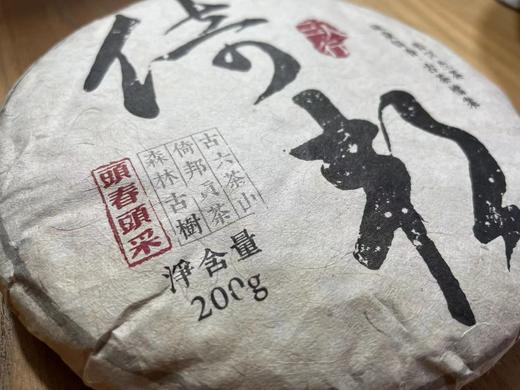 倚邦
古六茶山
倚邦贡茶
森林古樹
頭春頭采
淨含量
200g